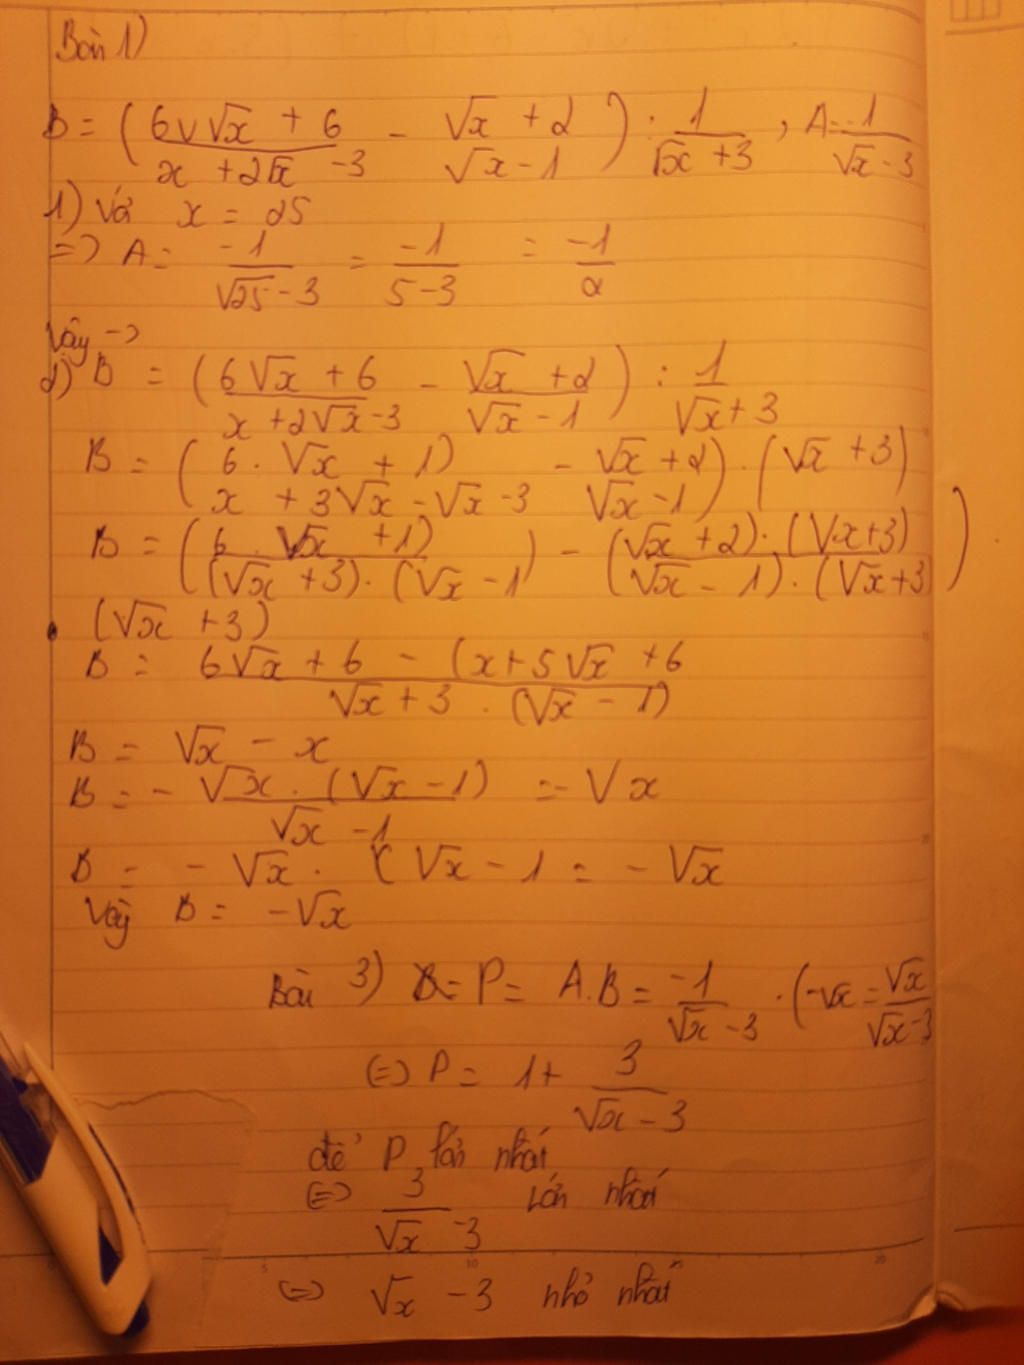 Bài 1)
B = ( 6√√x + 6 / x + 2√x - 3 - √x + 2 / √x - 1 ) : 1 / √x + 3 , A = -1 / √x - 3
1) Với x = 25
=> A = -1 / √25 - 3 = -1 / 5 - 3 = -1 / 2
Vậy ->
2) B = ( 6√x + 6 / x + 2√x - 3 - √x + 2 / √x - 1 ) : 1 / √x + 3
B = ( 6 . √x + 1) / x + 3√x - √x - 3 - √x + 2 / √x - 1 ) . (√x + 3)
B = ( 6 . √x + 1) / (√x + 3) . (√x - 1 ) - ( √x + 2) . (√x + 3) / √x - 1) . (√x + 3) )
. (√x + 3)
B = 6√x + 6 - (x + 5√x + 6 / √x + 3 . (√x - 1)
B = √x - x
B = - √x . (√x - 1) / √x - 1 = - √x
B = - √x . ( √x - 1 = - √x
Vậy B = - √x
Bài 3) B = P = A.B = -1 / √x - 3 . (-√x = √x / √x - 3
(=) P = 1 + 3 / √x - 3
để P lớn nhất
(=) 3 / √x - 3 lớn nhất
(=) √x - 3 nhỏ nhất
5 10 15 20